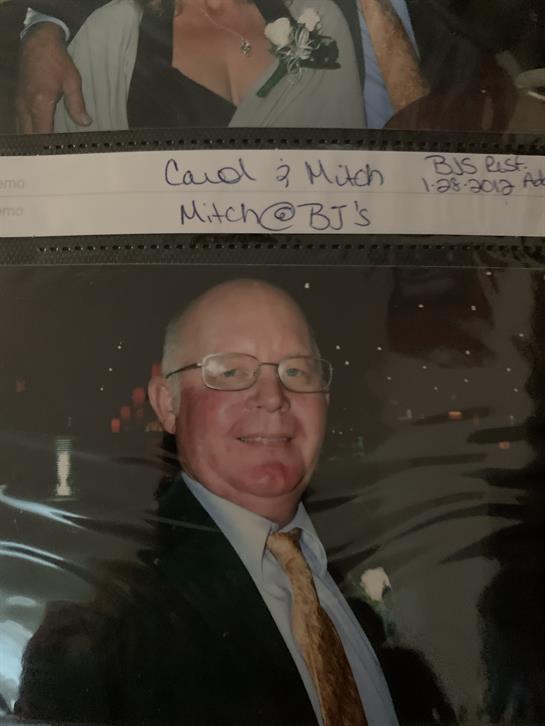 Carol & Mitch
BJS Rest.
1-28-2012
Mitch@BJ's
emo
emo